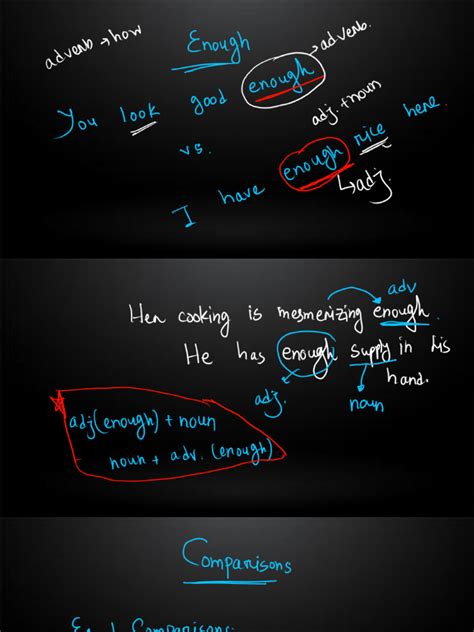 adverb → how
Enough
→ adverb.
You look good enough
adj. + noun
vs.
I have enough rice here.
↳ adj.
adv
Her cooking is mesmerizing enough.
He has enough supply in his
hand.
adj.
noun
adj(enough) + noun
noun + adv. (enough)
Comparisons
Comparisons: